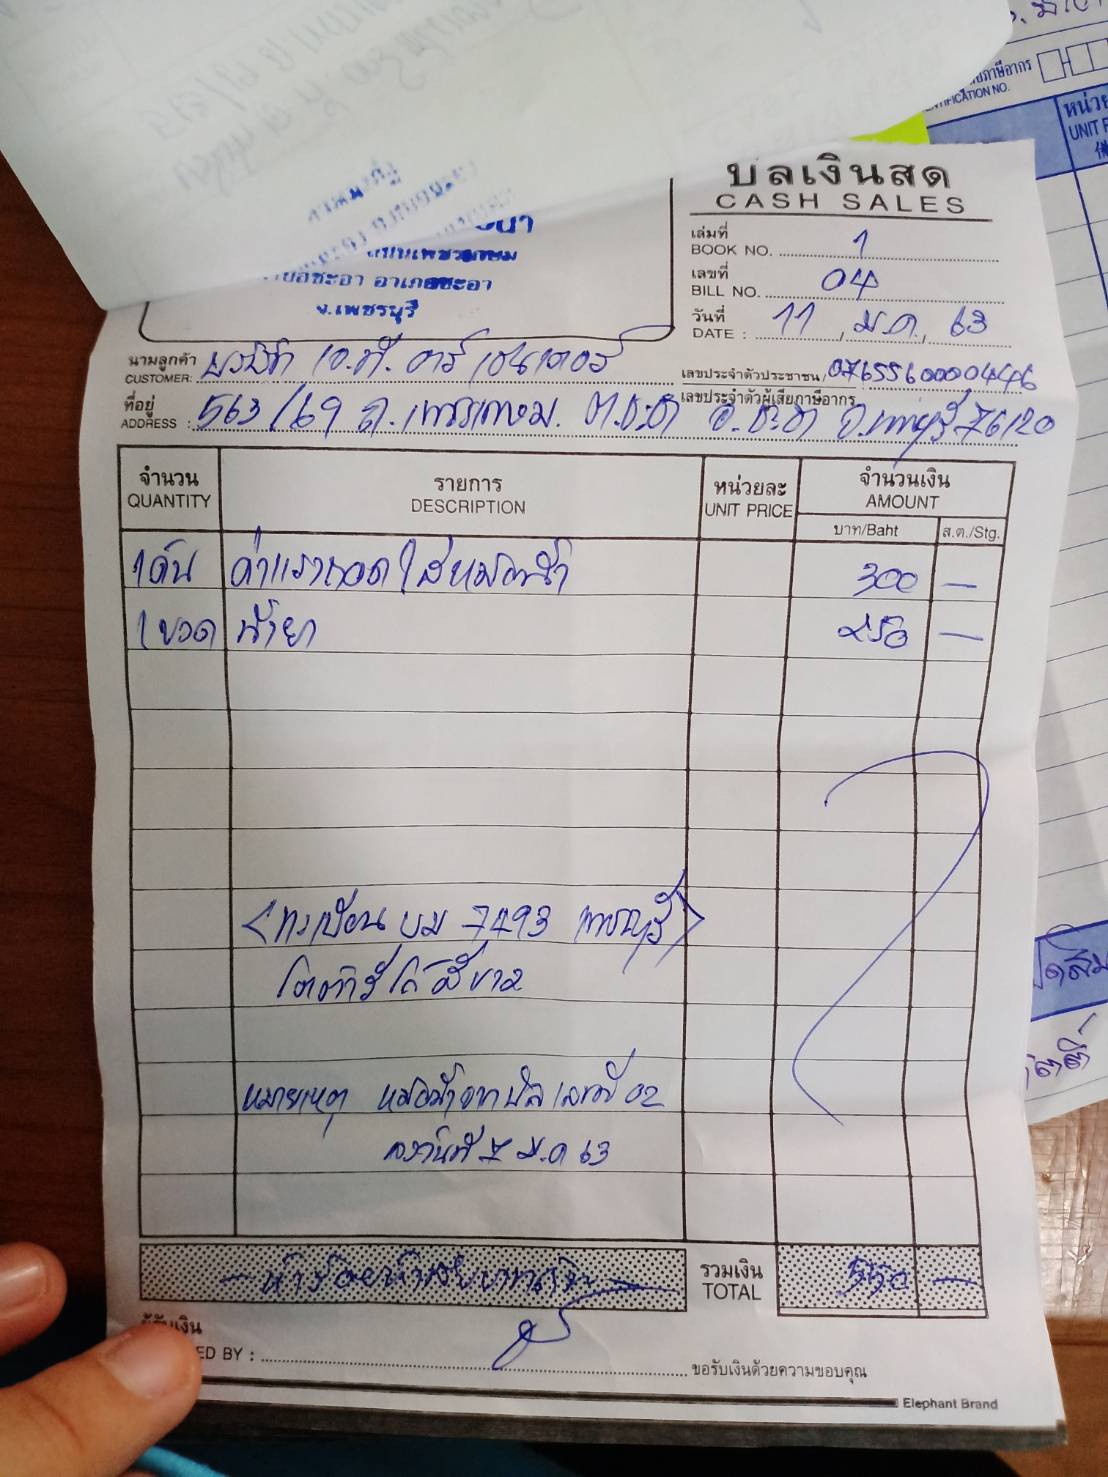 บิลเงินสด
CASH SALES
เล่มที่
BOOK NO. 1
เลขที่
BILL NO. 04
วันที่
DATE : 11 ม.ค. 63
ถนนเพชรเกษม
อำเภอชะอำ
จ.เพชรบุรี
นามลูกค้า
CUSTOMER: บริษัท เอ.ที. อาร์
เลขประจำตัวประชาชน/
เลขประจำตัวผู้เสียภาษีอากร 0765560000446
ที่อยู่
ADDRESS : 563/69 ถ.เพชรเกษม ต.ชะอำ อ.ชะอำ จ.เพชรบุรี 76120
จำนวน รายการ หน่วยละ จำนวนเงิน
QUANTITY DESCRIPTION UNIT PRICE AMOUNT
บาท/Baht ส.ต./Stg.
1คัน ค่าแรงถอดใส่หม้อน้ำ 300 —
1ขวด น้ำยา 250 —
<ทะเบียน บม 7493 เพชรบุรี>
สีขาว
หมายเหตุ หม้อน้ำจากบิลเลขที่ 02
ลงวันที่ 7 ม.ค 63
— ห้าร้อยห้าสิบบาทถ้วน —
รวมเงิน
TOTAL 550 —
ผู้รับเงิน
ED BY :
ขอรับเงินด้วยความขอบคุณ
Elephant Brand
ภาษีอากร
TIFICATION NO.
หน่วย
UNIT P